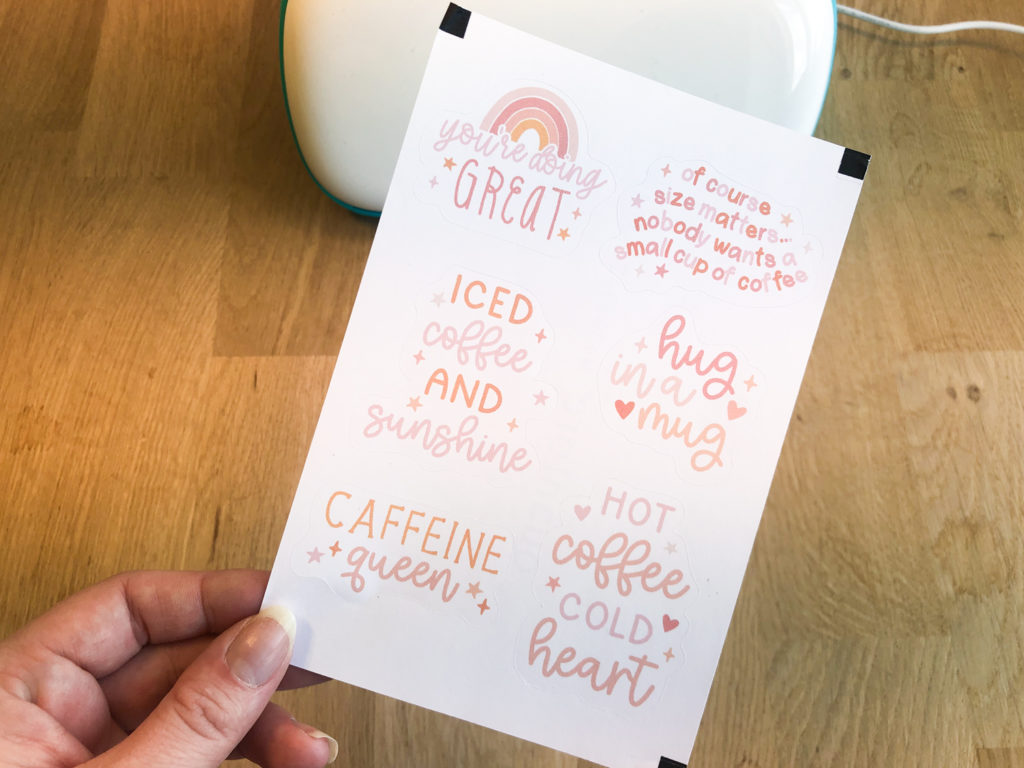 you're doing
GREAT
of course
size matters...
nobody wants a
small cup of coffee
ICED
coffee
AND
sunshine
hug
in a
mug
CAFFEINE
queen
HOT
coffee
COLD
heart